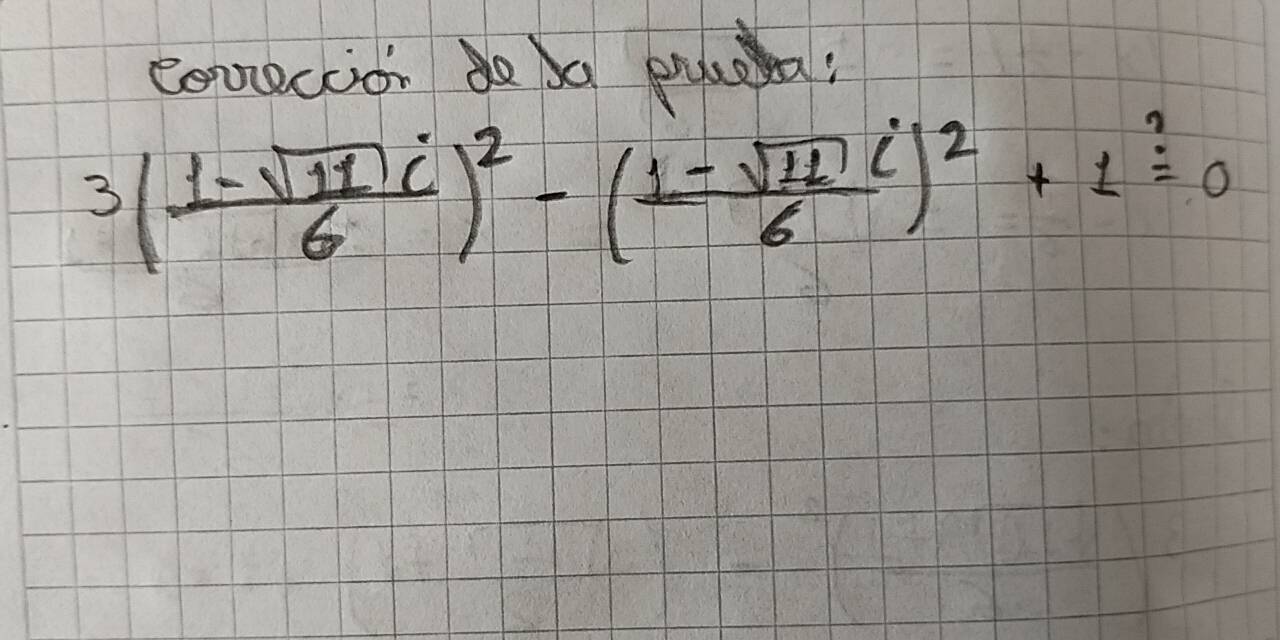 corrección de la prueba:
3(\frac{1-\sqrt{11}i}{6})^2 - (\frac{1-\sqrt{11}i}{6})^2 + 1 \stackrel{?}{=} 0